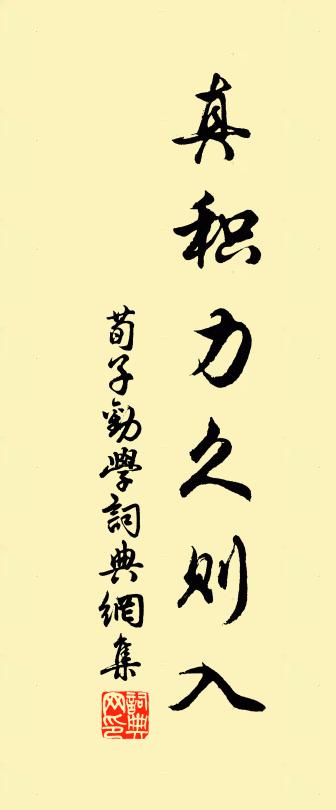 真积力久则入
荀子勸學詞典網集
詞典网印